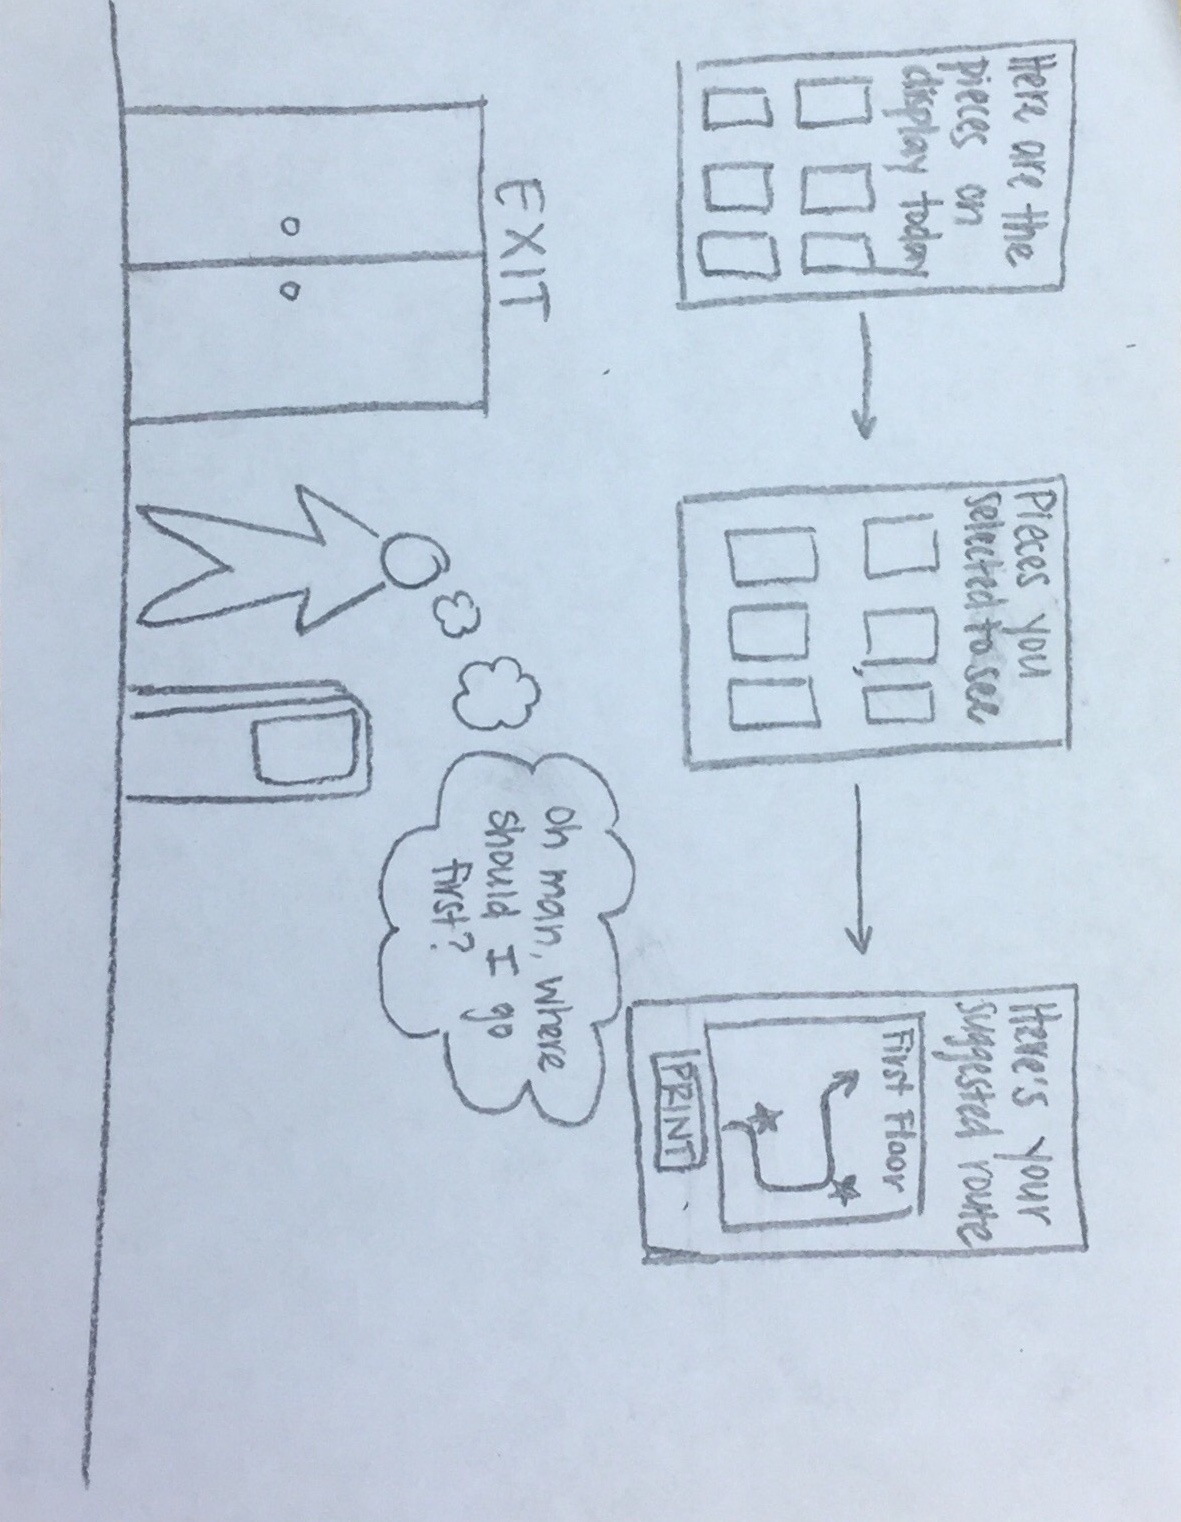 Here are the
pieces on
display today
Pieces you
selected to see
Here's your
suggested route
First Floor
PRINT
EXIT
Oh man, where
should I go
first?